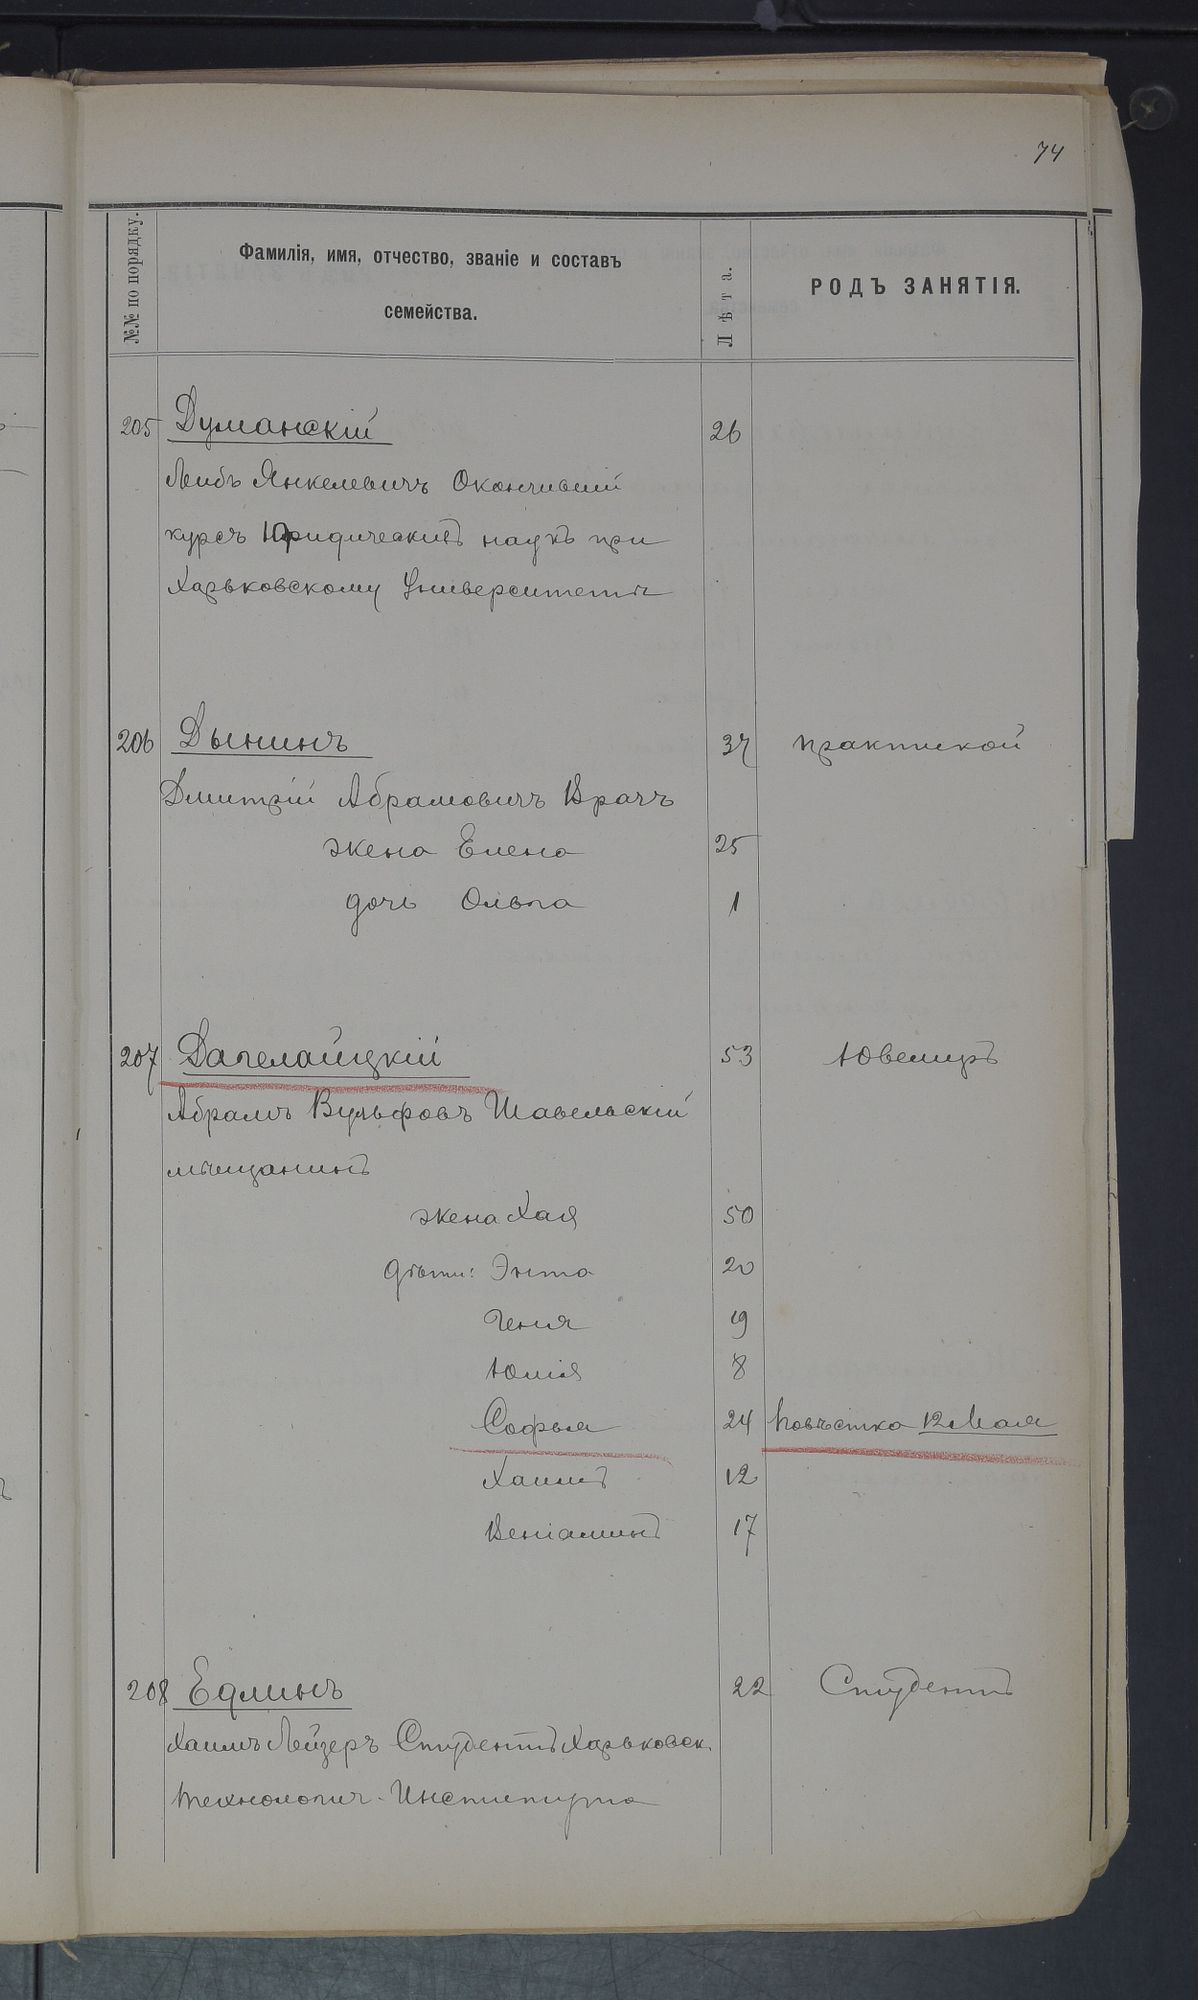 74
№№ по порядку.
Фамилія, имя, отчество, званіе и составъ
семейства.
Лѣта.
РОДЪ ЗАНЯТІЯ.
205 Думанскій 26
Лейбъ Янкелевичъ Окончившій
курсъ Юридическихъ наукъ при
Харьковскому Университетѣ
206 Дынинъ 37 практикой
Дмитрій Абрамовичъ Врачъ
жена Елена 25
дочь Ольга 1
207 Дагелайцкій 53 Ювелиръ
Абрамъ Вульфовъ Шавельскій
мѣщанинъ
жена Хая 50
дѣти: Энта 20
Геня 19
Юлія 8
Софья 24 повѣстка 12 Мая
Хаимъ 12
Веніаминъ 17
208 Едлинъ 22 Студентъ
Хаимъ Лейзеръ Студентъ Харьковск.
технологич. Института